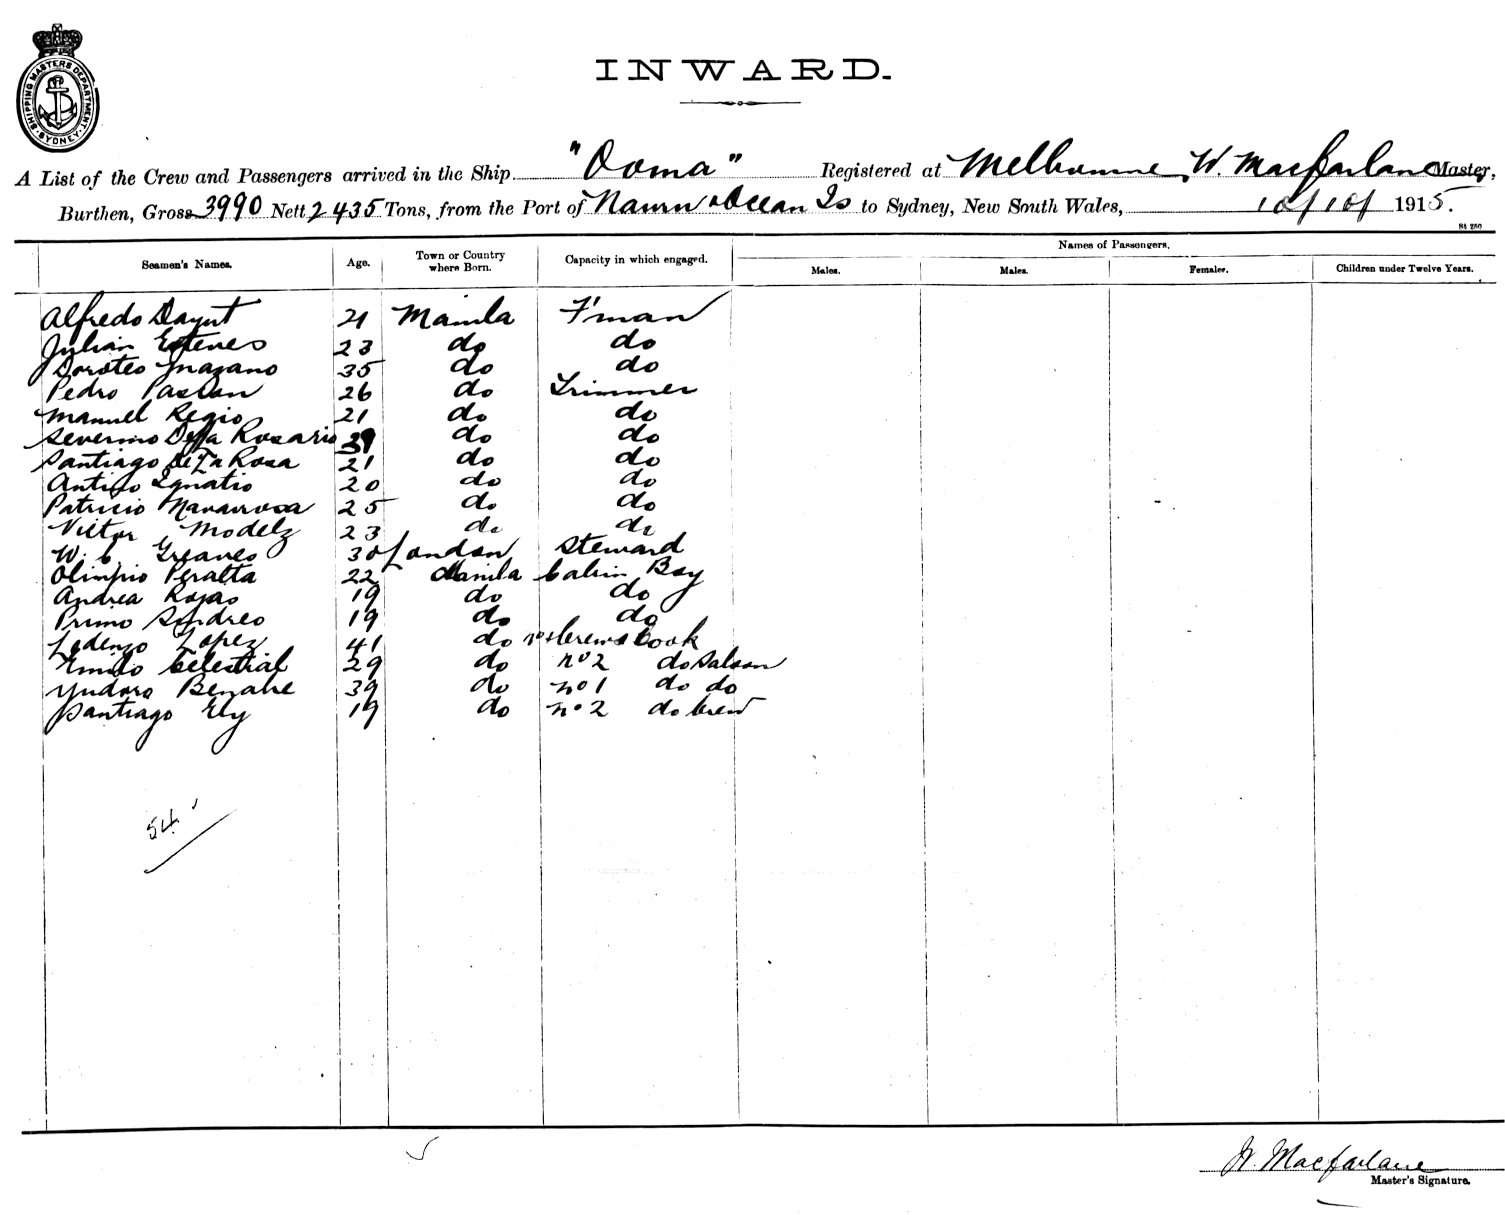 SHIPPING MASTERS DEPARTMENT · SYDNEY ·
INWARD.
A List of the Crew and Passengers arrived in the Ship "Ooma" Registered at Melbourne, W. Macfarlane Master,
Burthen, Gross 3990 Nett 2435 Tons, from the Port of Nauru & Ocean Is to Sydney, New South Wales, 10/10/ 1915.
St 250
Seamen's Names. Age. Town or Country where Born. Capacity in which engaged. Names of Passengers.
Males. Males. Females. Children under Twelve Years.
Alfredo Dayut 21 Manila F'man
Julian Estenes 23 do do
Doroteo 35 do do
Pedro 26 do Trimmer
Manuel Regio 21 do do
Severino Della Rosario 39 do do
Santiago De La Rosa 21 do do
Ignatio 20 do do
Patricio Navarrosa 25 do do
Victor Modelz 23 do do
W. C Greaves 30 London Steward
Olimpio Peralta 22 Manila Cabin Boy
Andrea Rojas 19 do do
Primo Andreo 19 do do
Lopez 41 do Crews Cook
Emilio Celestial 29 do No 2 do Saloon
39 do No 1 do do
Santiago Ely 19 do No 2 do Crew
54
W. Macfarlane
Master's Signature.